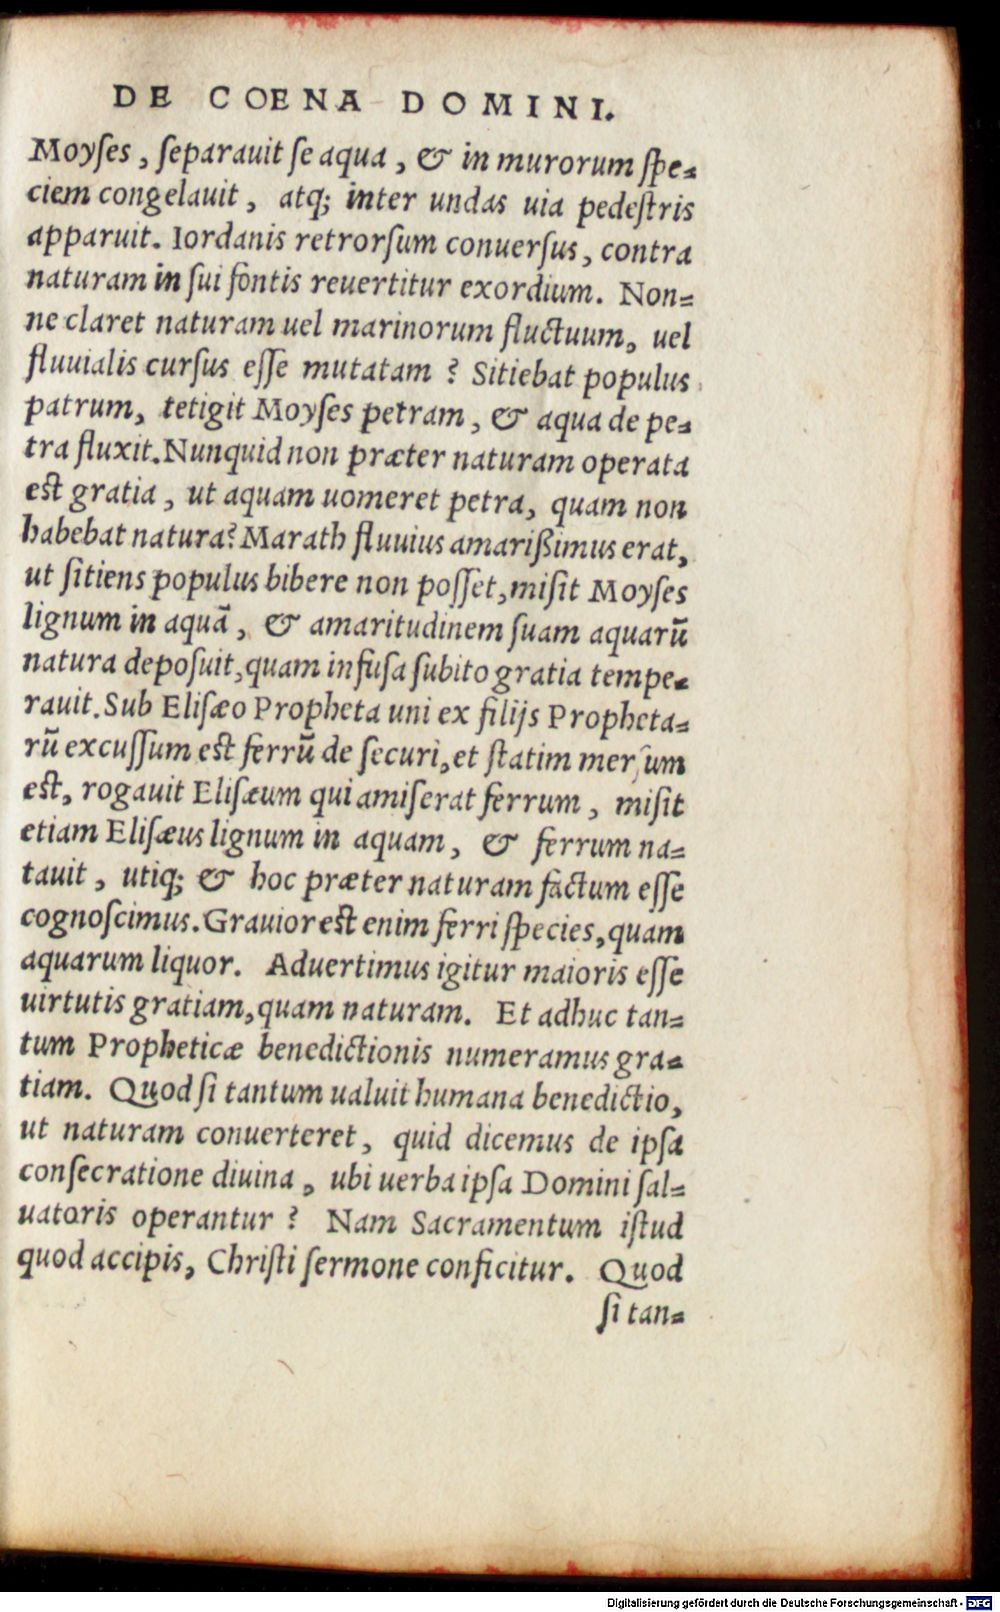 DE COENA DOMINI.
Moyſes, ſeparauit ſe aqua, & in murorum ſpe-
ciem congelauit, atq; inter undas uia pedeſtris
apparuit. Iordanis retrorſum conuerſus, contra
naturam in ſui fontis reuertitur exordium. Non-
ne claret naturam uel marinorum fluctuum, uel
fluuialis curſus eſſe mutatam? Sitiebat populus
patrum, tetigit Moyſes petram, & aqua de pe-
tra fluxit. Nunquid non præter naturam operata
est gratia, ut aquam uomeret petra, quam non
habebat natura? Marath fluuius amarißimus erat,
ut ſitiens populus bibere non poſſet, miſit Moyſes
lignum in aquã, & amaritudinem ſuam aquarũ
natura depoſuit, quam infuſa ſubito gratia tempe-
rauit. Sub Eliſæo Propheta uni ex filijs Propheta-
rũ excuſſum est ferrũ de ſecuri, et ſtatim merſum
est, rogauit Eliſæum qui amiſerat ferrum, miſit
etiam Eliſæus lignum in aquam, & ferrum na-
tauit, utiq; & hoc præter naturam factum eſſe
cognoſcimus. Grauior est enim ferri ſpecies, quam
aquarum liquor. Aduertimus igitur maioris eſſe
uirtutis gratiam, quam naturam. Et adhuc tan-
tum Propheticæ benedictionis numeramus gra-
tiam. Quod ſi tantum ualuit humana benedictio,
ut naturam conuerteret, quid dicemus de ipſa
conſecratione diuina, ubi uerba ipſa Domini ſal-
uatoris operantur? Nam Sacramentum iſtud
quod accipis, Chriſti ſermone conficitur. Quod
ſi tan-
Digitalisierung gefördert durch die Deutsche Forschungsgemeinschaft - DFG